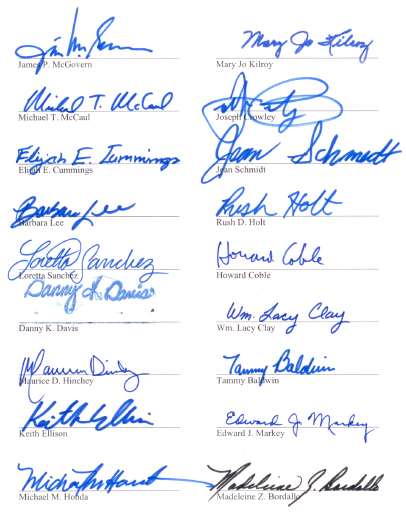 James P. McGovern
James P. McGovern
Mary Jo Kilroy
Mary Jo Kilroy
Michael T. McCaul
Michael T. McCaul
Joseph Crowley
Elijah E. Cummings
Elijah E. Cummings
Jean Schmidt
Jean Schmidt
Barbara Lee
Barbara Lee
Rush Holt
Rush D. Holt
Loretta Sanchez
Loretta Sanchez
Howard Coble
Howard Coble
Danny K. Davis
Danny K. Davis
Wm. Lacy Clay
Wm. Lacy Clay
Maurice Hinchey
Maurice D. Hinchey
Tammy Baldwin
Tammy Baldwin
Keith Ellison
Keith Ellison
Edward J. Markey
Edward J. Markey
Michael M. Honda
Michael M. Honda
Madeleine Z. Bordallo
Madeleine Z. Bordallo